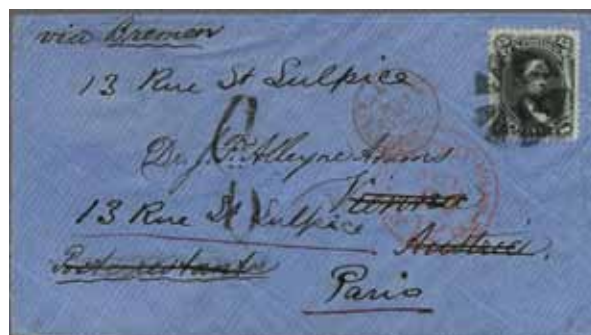 via Bremen
13 Rue St Sulpice
Dr. J. P. Alleyne Adams
Vienna
13 Rue St Sulpice
Austria.
Poste restante
Paris